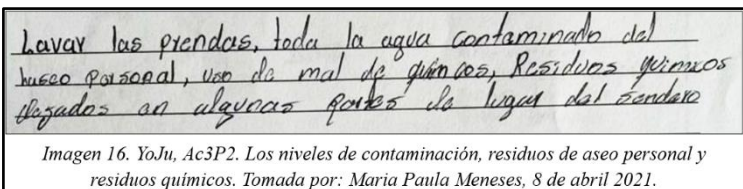 Lavar las prendas, toda la agua contaminado del
huseo personal, uso de mal de quimicos, Residuos quimicos
en algunas partes de lugar del sendero
Imagen 16. YoJu, Ac3P2. Los niveles de contaminación, residuos de aseo personal y
residuos químicos. Tomada por: Maria Paula Meneses, 8 de abril 2021.